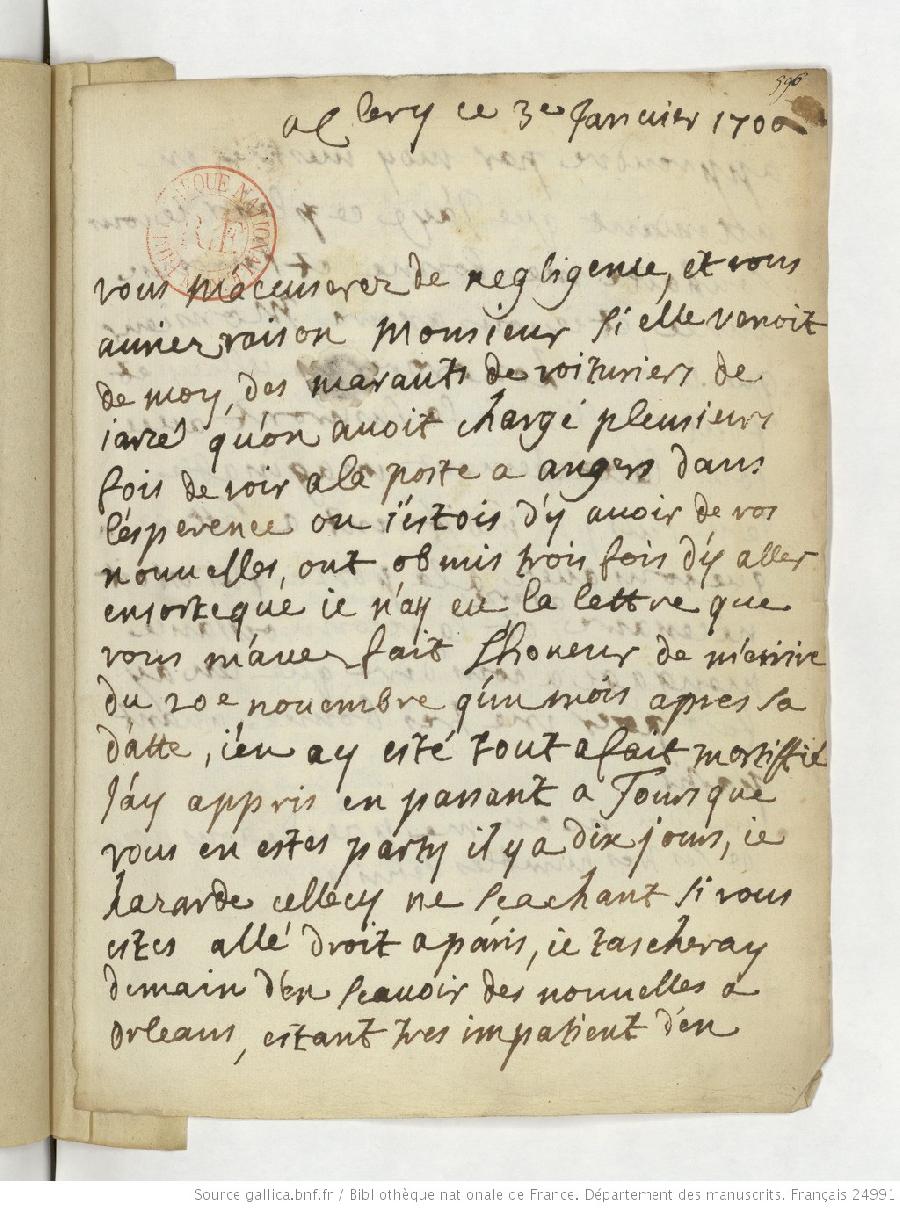 396
a Clery ce 3e Janvier 1700
vous m'accuserez de negligence, et vous
auriez raison Monsieur si elle venoit
de moy, des marauts de voituriers de
iarzé qu'on avoit chargé plusieurs
fois de voir a la poste a angers dans
l'esperence ou i'estois d'y avoir de vos
nouvelles, ont obmis trois fois d'y aller
ensorteque ie n'ay eue la lettre que
vous m'avez fait l'honeur de m'ecrire
du 20e novembre qu'un mois apres sa
datte, i'en ay esté tout a fait mortiffié
J'ay appris en passant a Tours que
vous en estes party il y a dix jours, ie
hazarde cellecy ne scachant si vous
estes allé droit a paris, ie tascheray
demain d'en scavoir des nouvelles a
Orleans, estant tres impatient d'en
Source gallica.bnf.fr / Bibliothèque nationale de France. Département des manuscrits. Français 24991